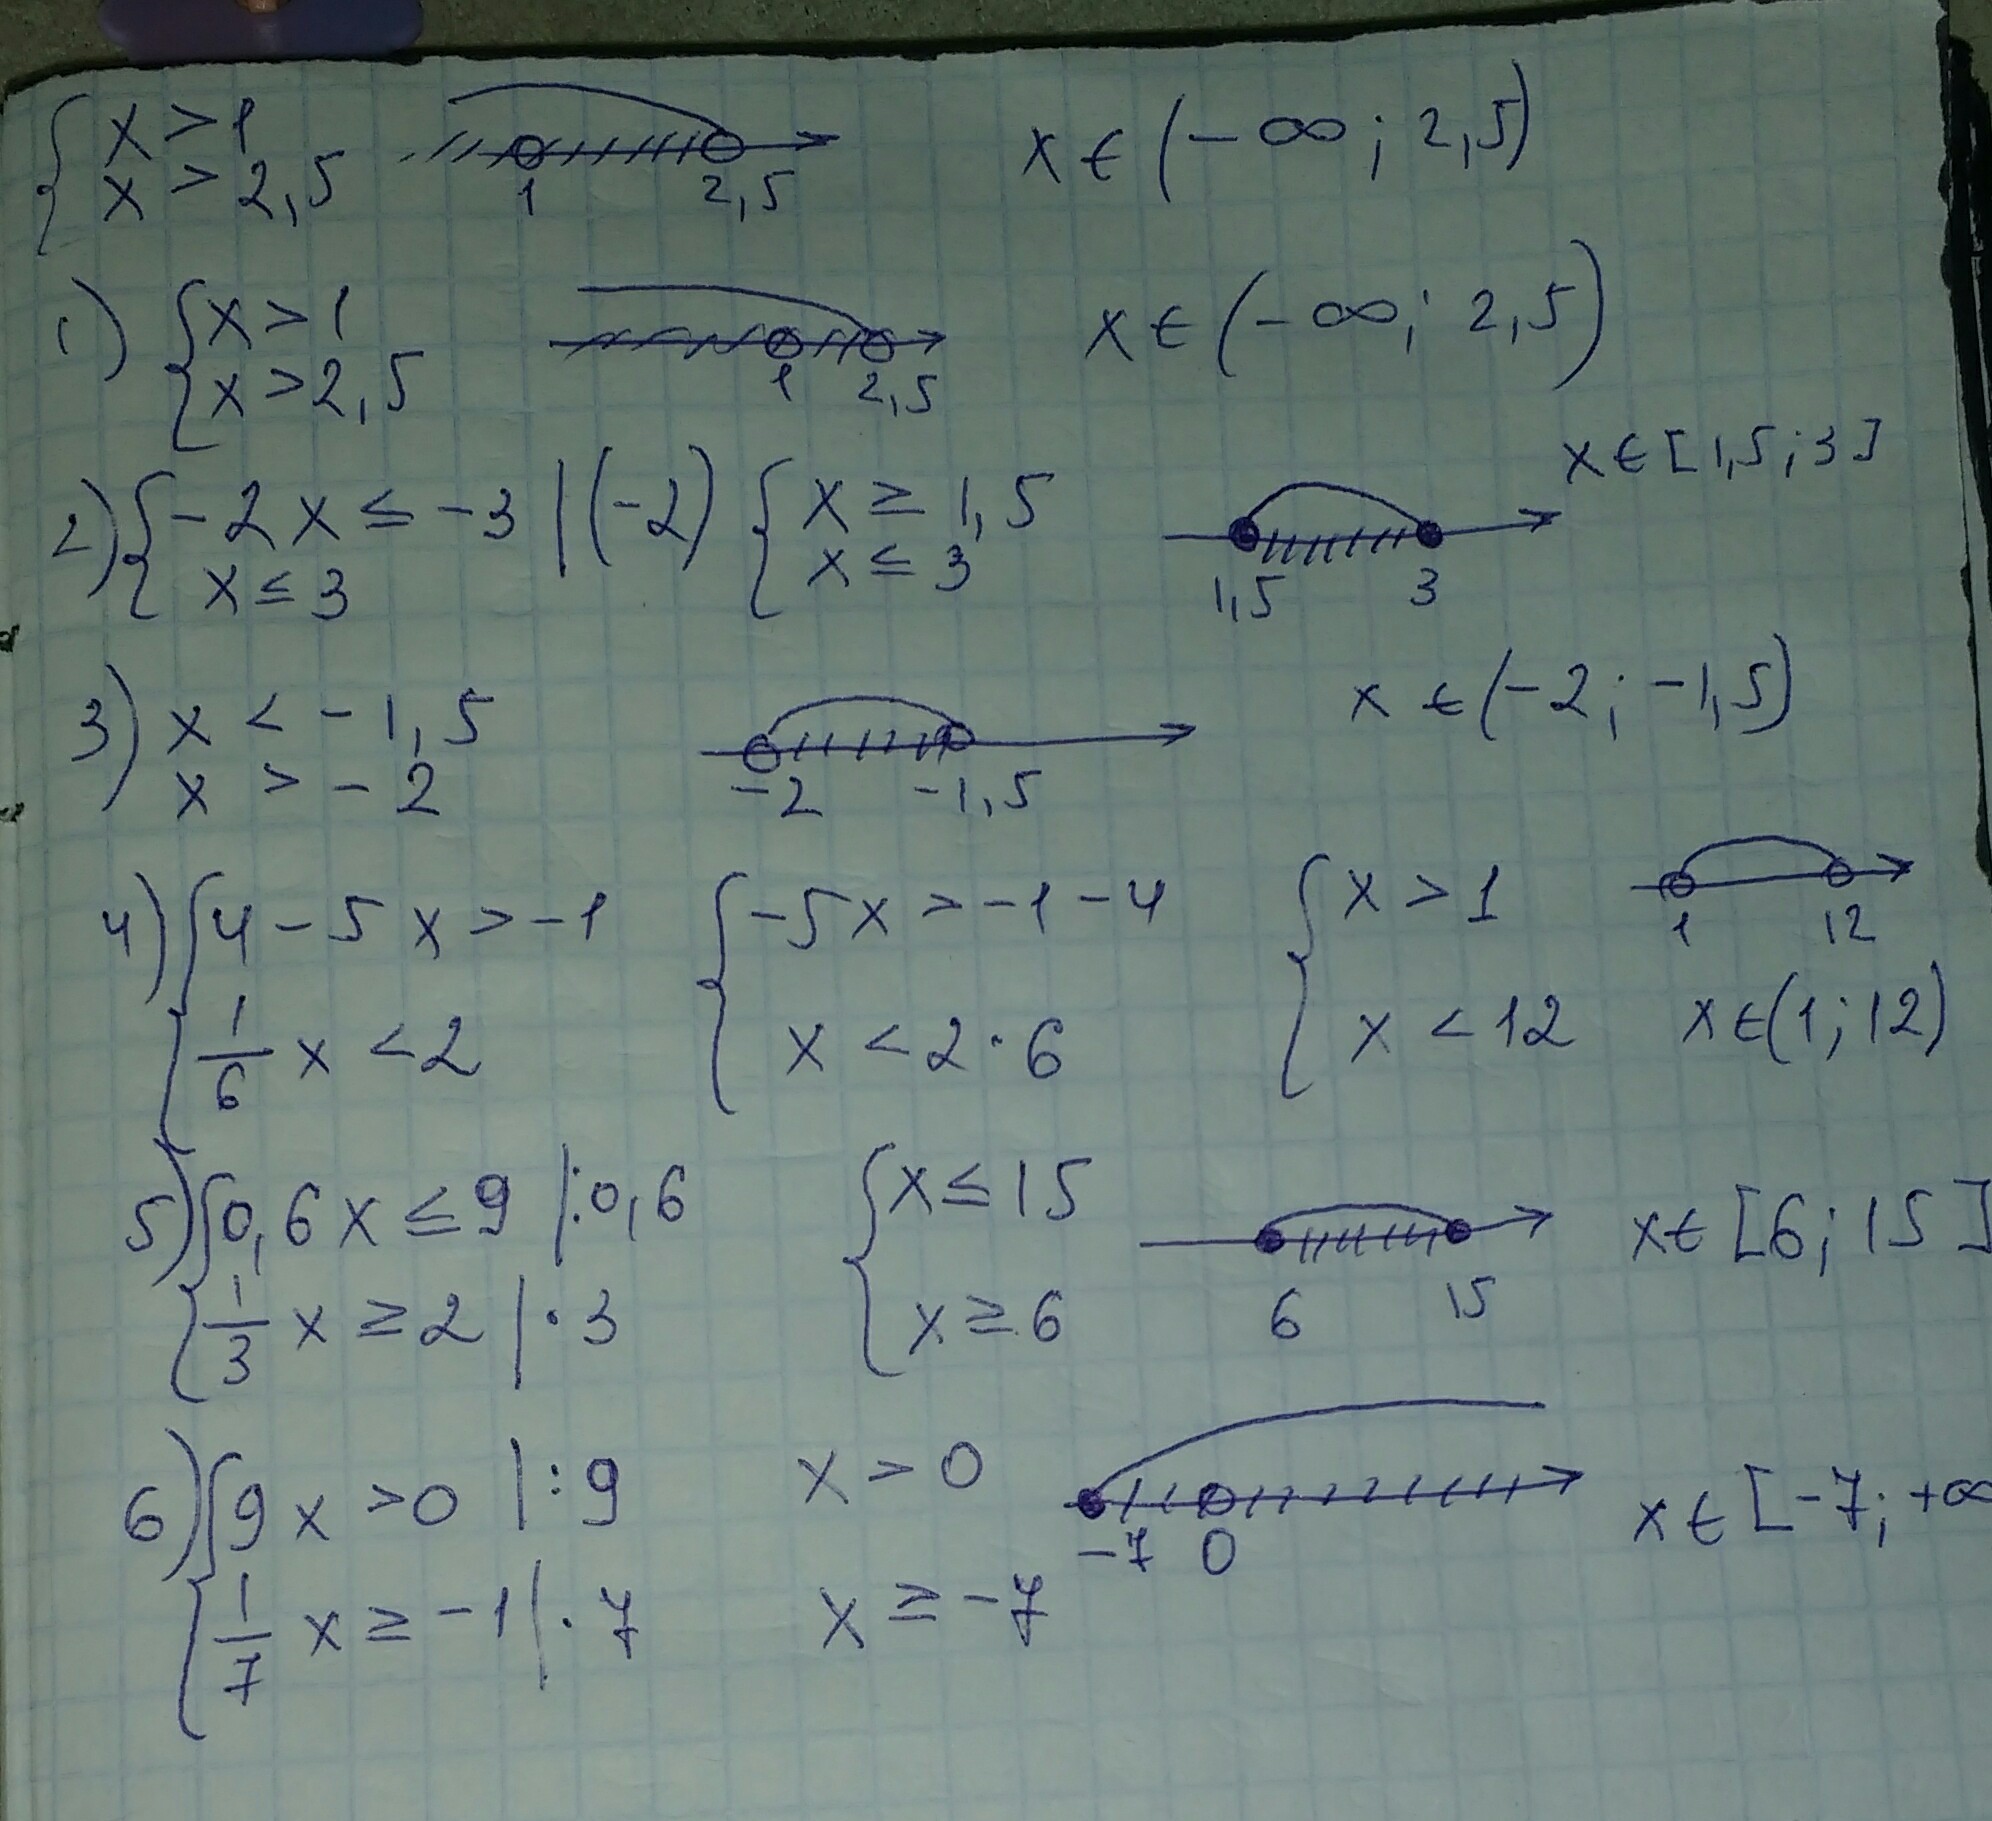 { x > 1
x > 2,5
1 2,5
x ∈ (-∞; 2,5)
1) { x > 1
x > 2,5
1 2,5
x ∈ (-∞; 2,5)
2) { -2x ≤ -3 |(-2)
x ≤ 3
{ x ≥ 1,5
x ≤ 3
1,5 3
x ∈ [1,5; 3]
3) x < -1,5
x > -2
-2 -1,5
x ∈ (-2; -1,5)
4) { 4 - 5x > -1
1/6 x < 2
{ -5x > -1 - 4
x < 2 · 6
{ x > 1
x < 12
1 12
x ∈ (1; 12)
5) { 0,6x ≤ 9 |:0,6
1/3 x ≥ 2 | · 3
{ x ≤ 15
x ≥ 6
6 15
x ∈ [6; 15]
6) { 9x > 0 | : 9
1/7 x ≥ -1 | · 7
x > 0
x ≥ -7
-7 0
x ∈ [-7; +∞